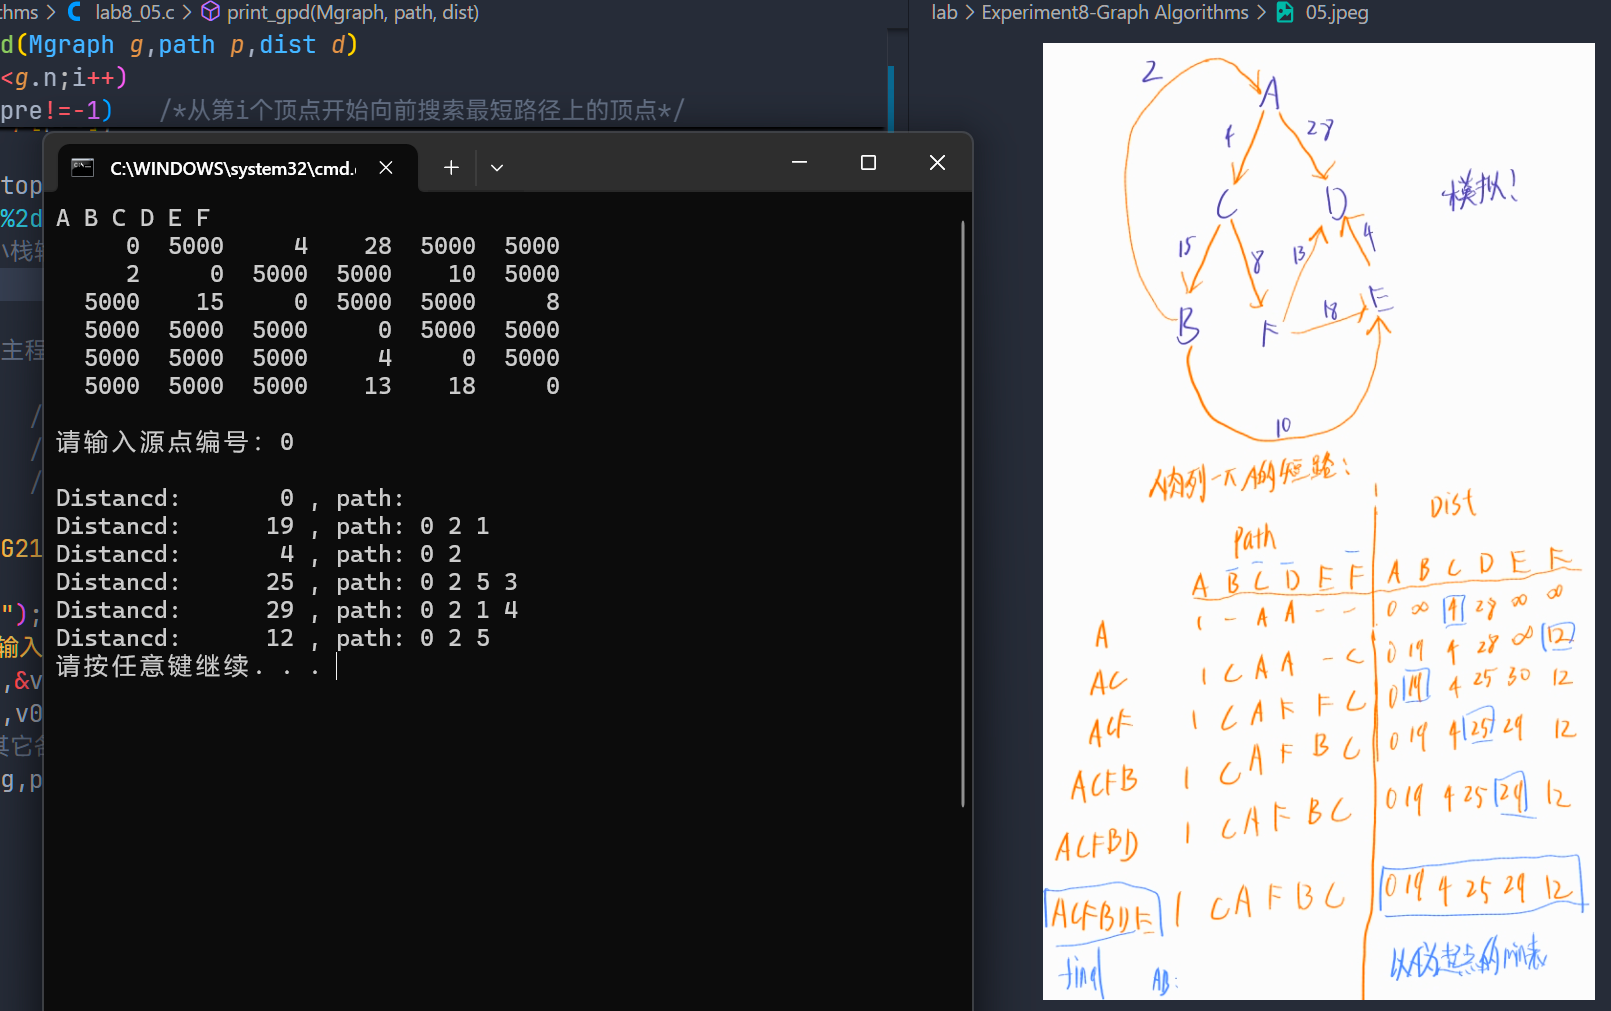 thms > C lab8_05.c > print_gpd(Mgraph, path, dist)
lab > Experiment8-Graph Algorithms > 05.jpeg
d(Mgraph g,path p,dist d)
<g.n;i++)
pre!=-1) /*从第i个顶点开始向前搜索最短路径上的顶点*/
top
%2d
主程
G21
");
输入
,&v
,v0
g,p
C:\WINDOWS\system32\cmd.
A B C D E F
0 5000 4 28 5000 5000
2 0 5000 5000 10 5000
5000 15 0 5000 5000 8
5000 5000 5000 0 5000 5000
5000 5000 5000 4 0 5000
5000 5000 5000 13 18 0
请输入源点编号: 0
Distancd: 0 , path:
Distancd: 19 , path: 0 2 1
Distancd: 4 , path: 0 2
Distancd: 25 , path: 0 2 5 3
Distancd: 29 , path: 0 2 1 4
Distancd: 12 , path: 0 2 5
请按任意键继续. . .
2
A
4 28
C D
模拟!
15 8 13 4
B F 18 E
10
的短路:
Path Dist
A B C D E F A B C D E F
A 1 - A A - - 0 ∞ 4 28 ∞ ∞
AC 1 C A A - C 0 19 4 28 ∞ 12
ACF 1 C A F F C 0 19 4 25 30 12
ACFB 1 C A F B C 0 19 4 25 29 12
ACFBD 1 C A F B C 0 19 4 25 29 12
ACFBDE 1 C A F B C 0 19 4 25 29 12
final AB:
以A为起点的min表